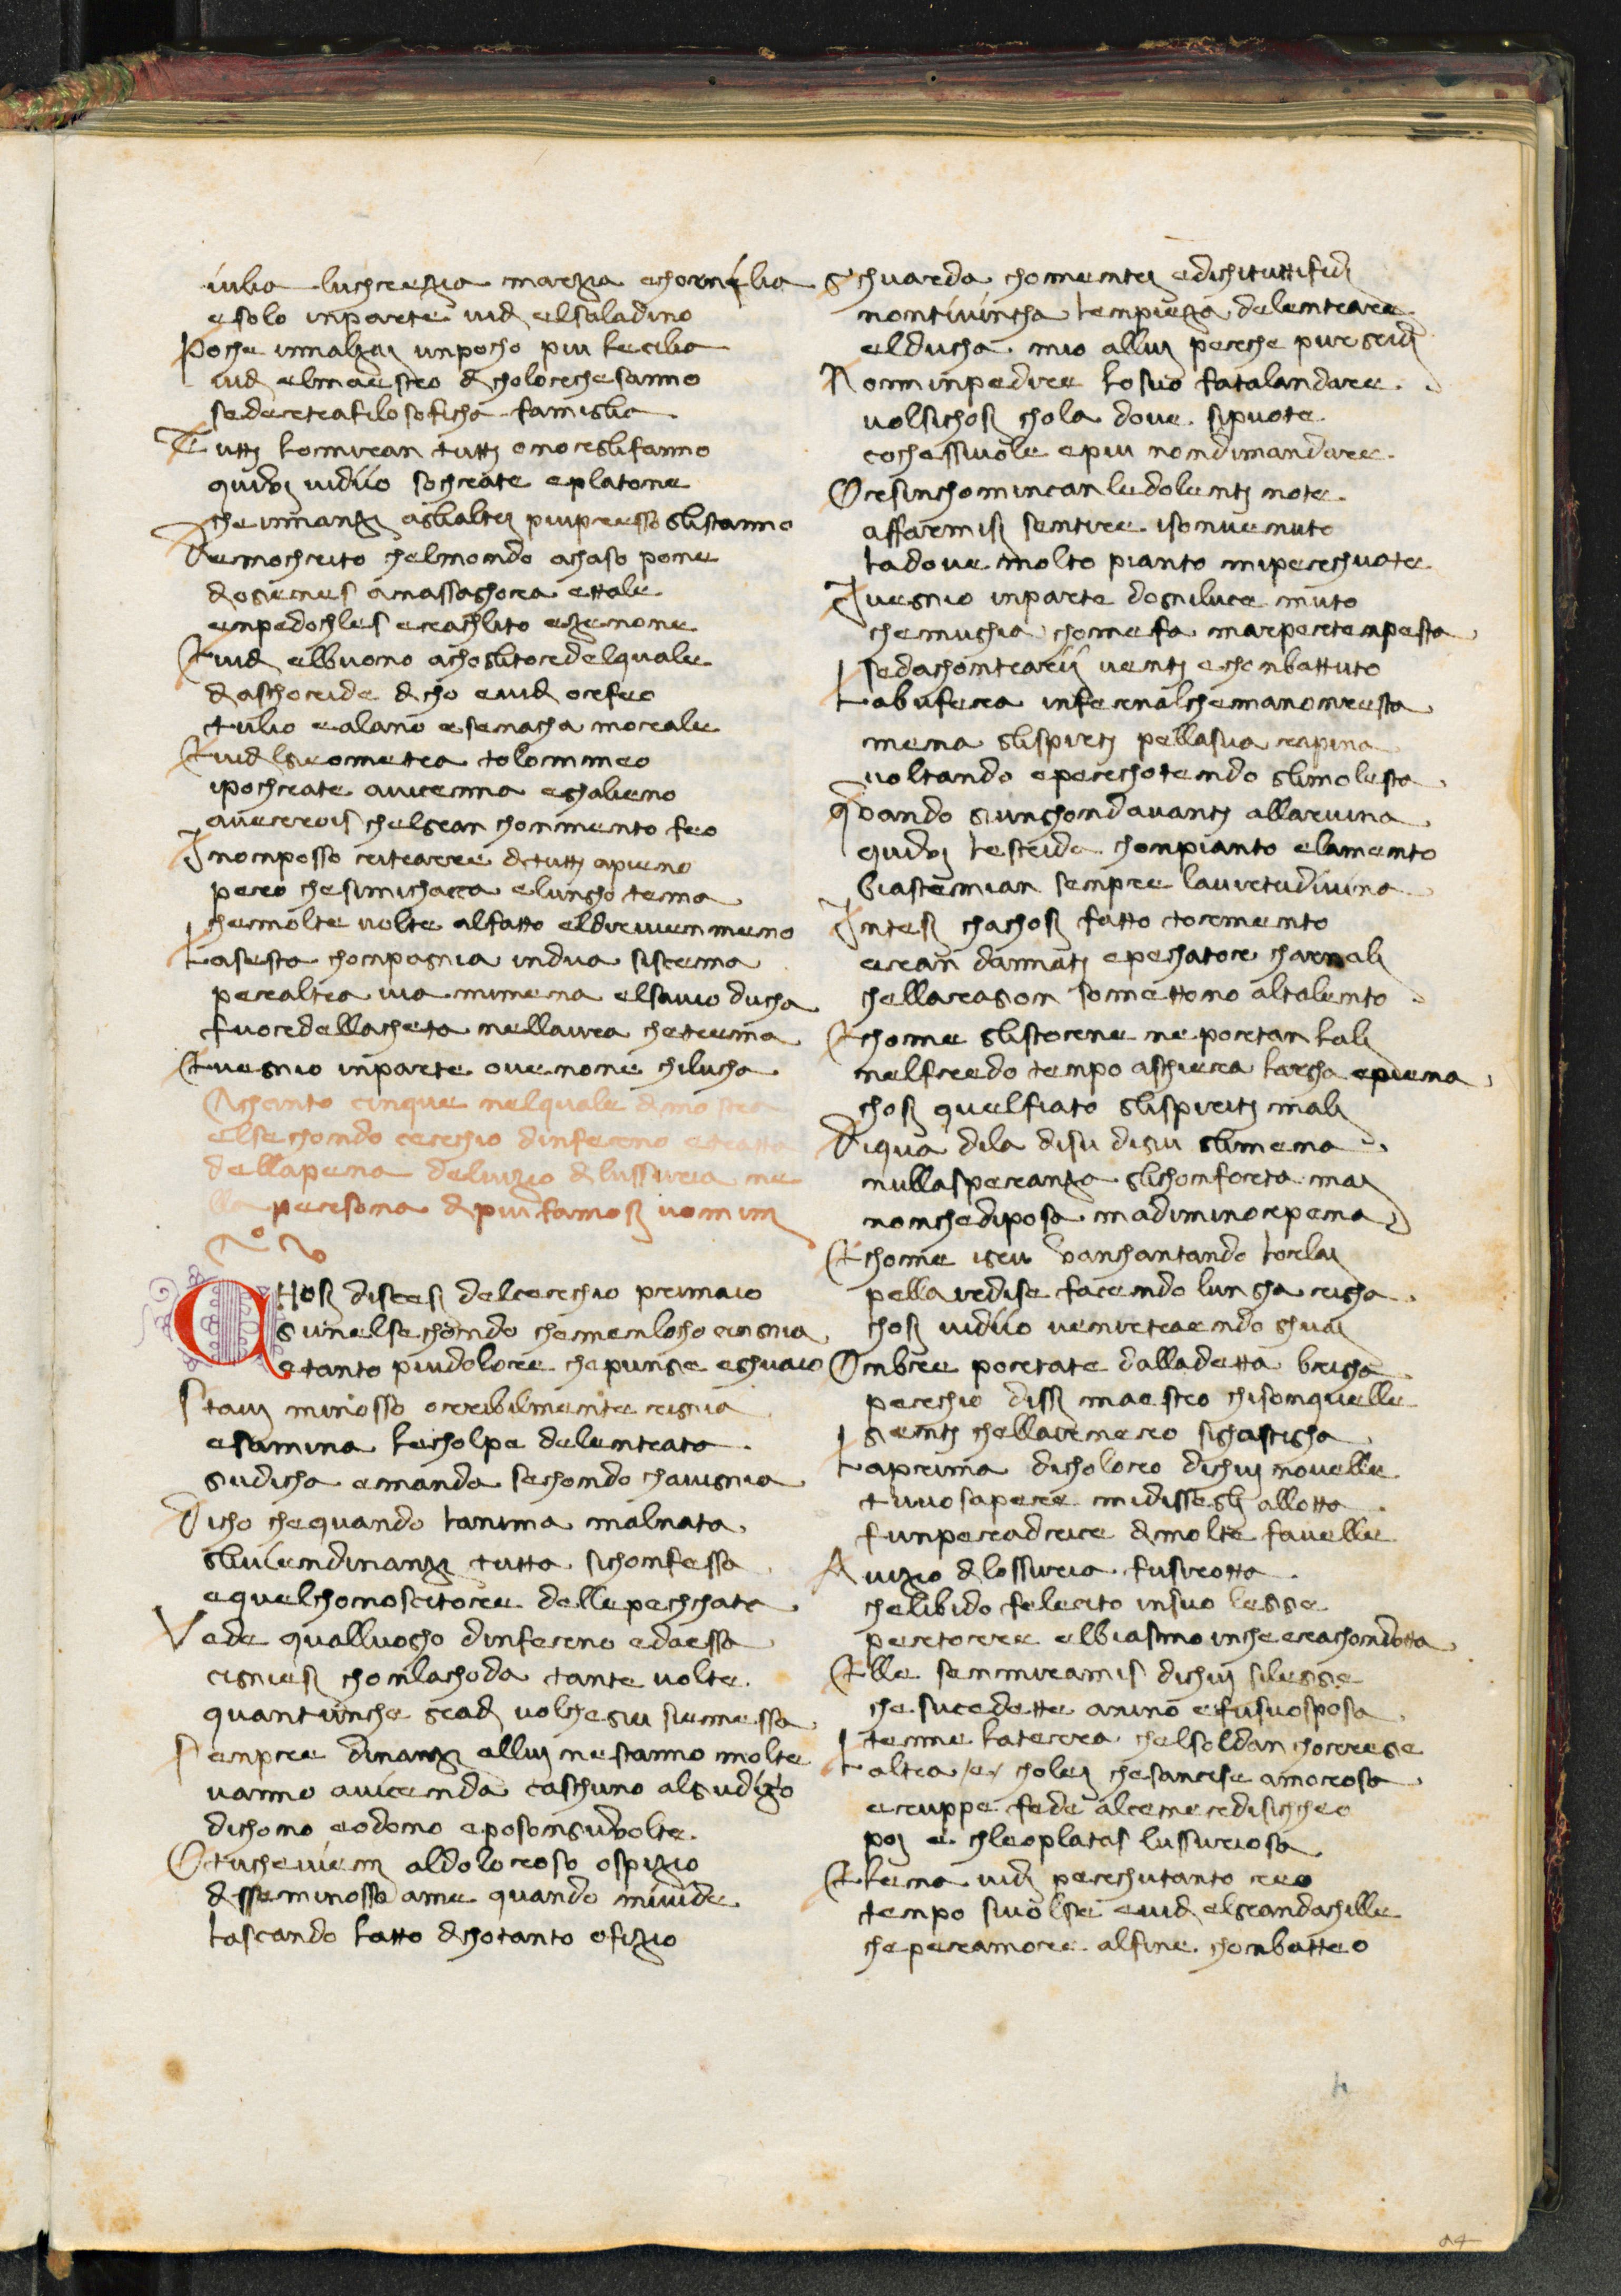 iulia luchrezia marzia echorniglia
esolo inparte vidi elsaladino
Poche innalzai unpocho piu lecilia
vidi elmaestro di cholorchesanno
sederetrafilosoficha famiglia
Tutti lomirean tutti onoreglifanno
quivi vidiio sochrate eplatone
cheinnanzi aglialtri piupressoglistanno
Demochrito chelmondo achaso pone
diogienes anassaghora ettale
enpedochles erachlito ezenone
Evidi elbuono achoglitoredelquale
diaschoride dicho evidi orfeo
tulio ealano esenacha morale
Evidi gieometra tolommeo
ipochrate avicenna eghalieno
averrois chelgran chommento feo
Inomposso ritrarre ditutti apieno
pero chesimichaccia elungho tema
chemolte volte alfatto eldirevienmeno
Lasesta chompagnia indua siscema
peraltra via mimena elsavio ducha
fuordellacheta nellaura chetrema
Evegnio inparte ovenone chilucha
Chanto cinque nelquale dimostra
elsechondo cerchio dinferno etratta
dellapena delvizio dilussuria ne
lla persona dipiu famosi uomini
CHosi discesi delcerchio primaio
giunelsechondo chemenlocho cingnia
etanto piudolore chepunge eghuaio
Stavi minosso orribilmente ringnia
esamina lecholpe delentrata
giudicha emanda sechondo chavingnia
Dicho chequando lanima malnata
gliviendinanzi tutta sichonfessa
equelchonoscitore dellepecchata
Vede qualluogho dinferno edaessa
cigniesi chonlachoda tante volte
quantunche gradi volchegiu siemessa
Senpre dinanzi allui nestanno molte
vanno avicenda ciaschuno algiudizio
dichono eodono eposongiuvolte
Otuchevieni aldoloroso ospizio
disseminosso ame quando mivide
lasciando latto dichotanto ofizio
Ghuarda chomentri edichituttifidi
nontivincha lempieza delentrare
elducha mio allui perche purgridi
Nonninpedire losuo fatalandare
volsichosi chola dove sipuote
cioche ssivole epiu nondimandare
Oresinchomincian ledolenti note
affarmisi sentire isonvenuto
ladove molto pianto miperchuote
Ivegnio inparte dogniluce muto
chemughia chomefa marpertenpesta
sedachontrarii venti echonbattuto
Labufera infernalchemainonresta
mena glispirti pellasua rapina
voltando eperchotendo glimolesta
Quando giunghondavanti allaruina
quivi lestrida chonpianto elamento
biastemian senpre lavirtudivina
Intesi chachosi fatto tormento
eran dannati epechatori charnali
chellaragion sommettono altalento
Echome glistorne ne portan lali
nelfreddo tempo aschiera largha epiena
chosi quelfiato glispiriti mali
Diqua dila disu digiu glimena
nullasperanza glichonforta mai
nonchediposa madiminorpena
Echome igru vanchantando lorlai
pellaredise facendo lungha righa
chosi vidiio venirtraendo ghuai
Ombre portate dalladetta brigha
perchio dissi maestro chisonquelle
gienti chellaernero sighastigha
Laprima dicholoro dichui novelle
tuvuosapere midissegli allotta
funperadrice dimolte favelle
Avizio dilossuria fusirotta
chelibido felecito insuo legge
pertorre elbiasimo inche erachondotta
Elle semmiramis dichui silegge
chesucedette anino efusuosposa
tenne laterra chelsoldan chorregge
Laltra e cholei chesancise amorosa
eruppe fede alcenerdisiccheo
poi e chleoplatas lussuriosa
Elena vidi perchutanto reo
tempo sivolse evidi elgrandachille
cheperamore alfine chonbatteo